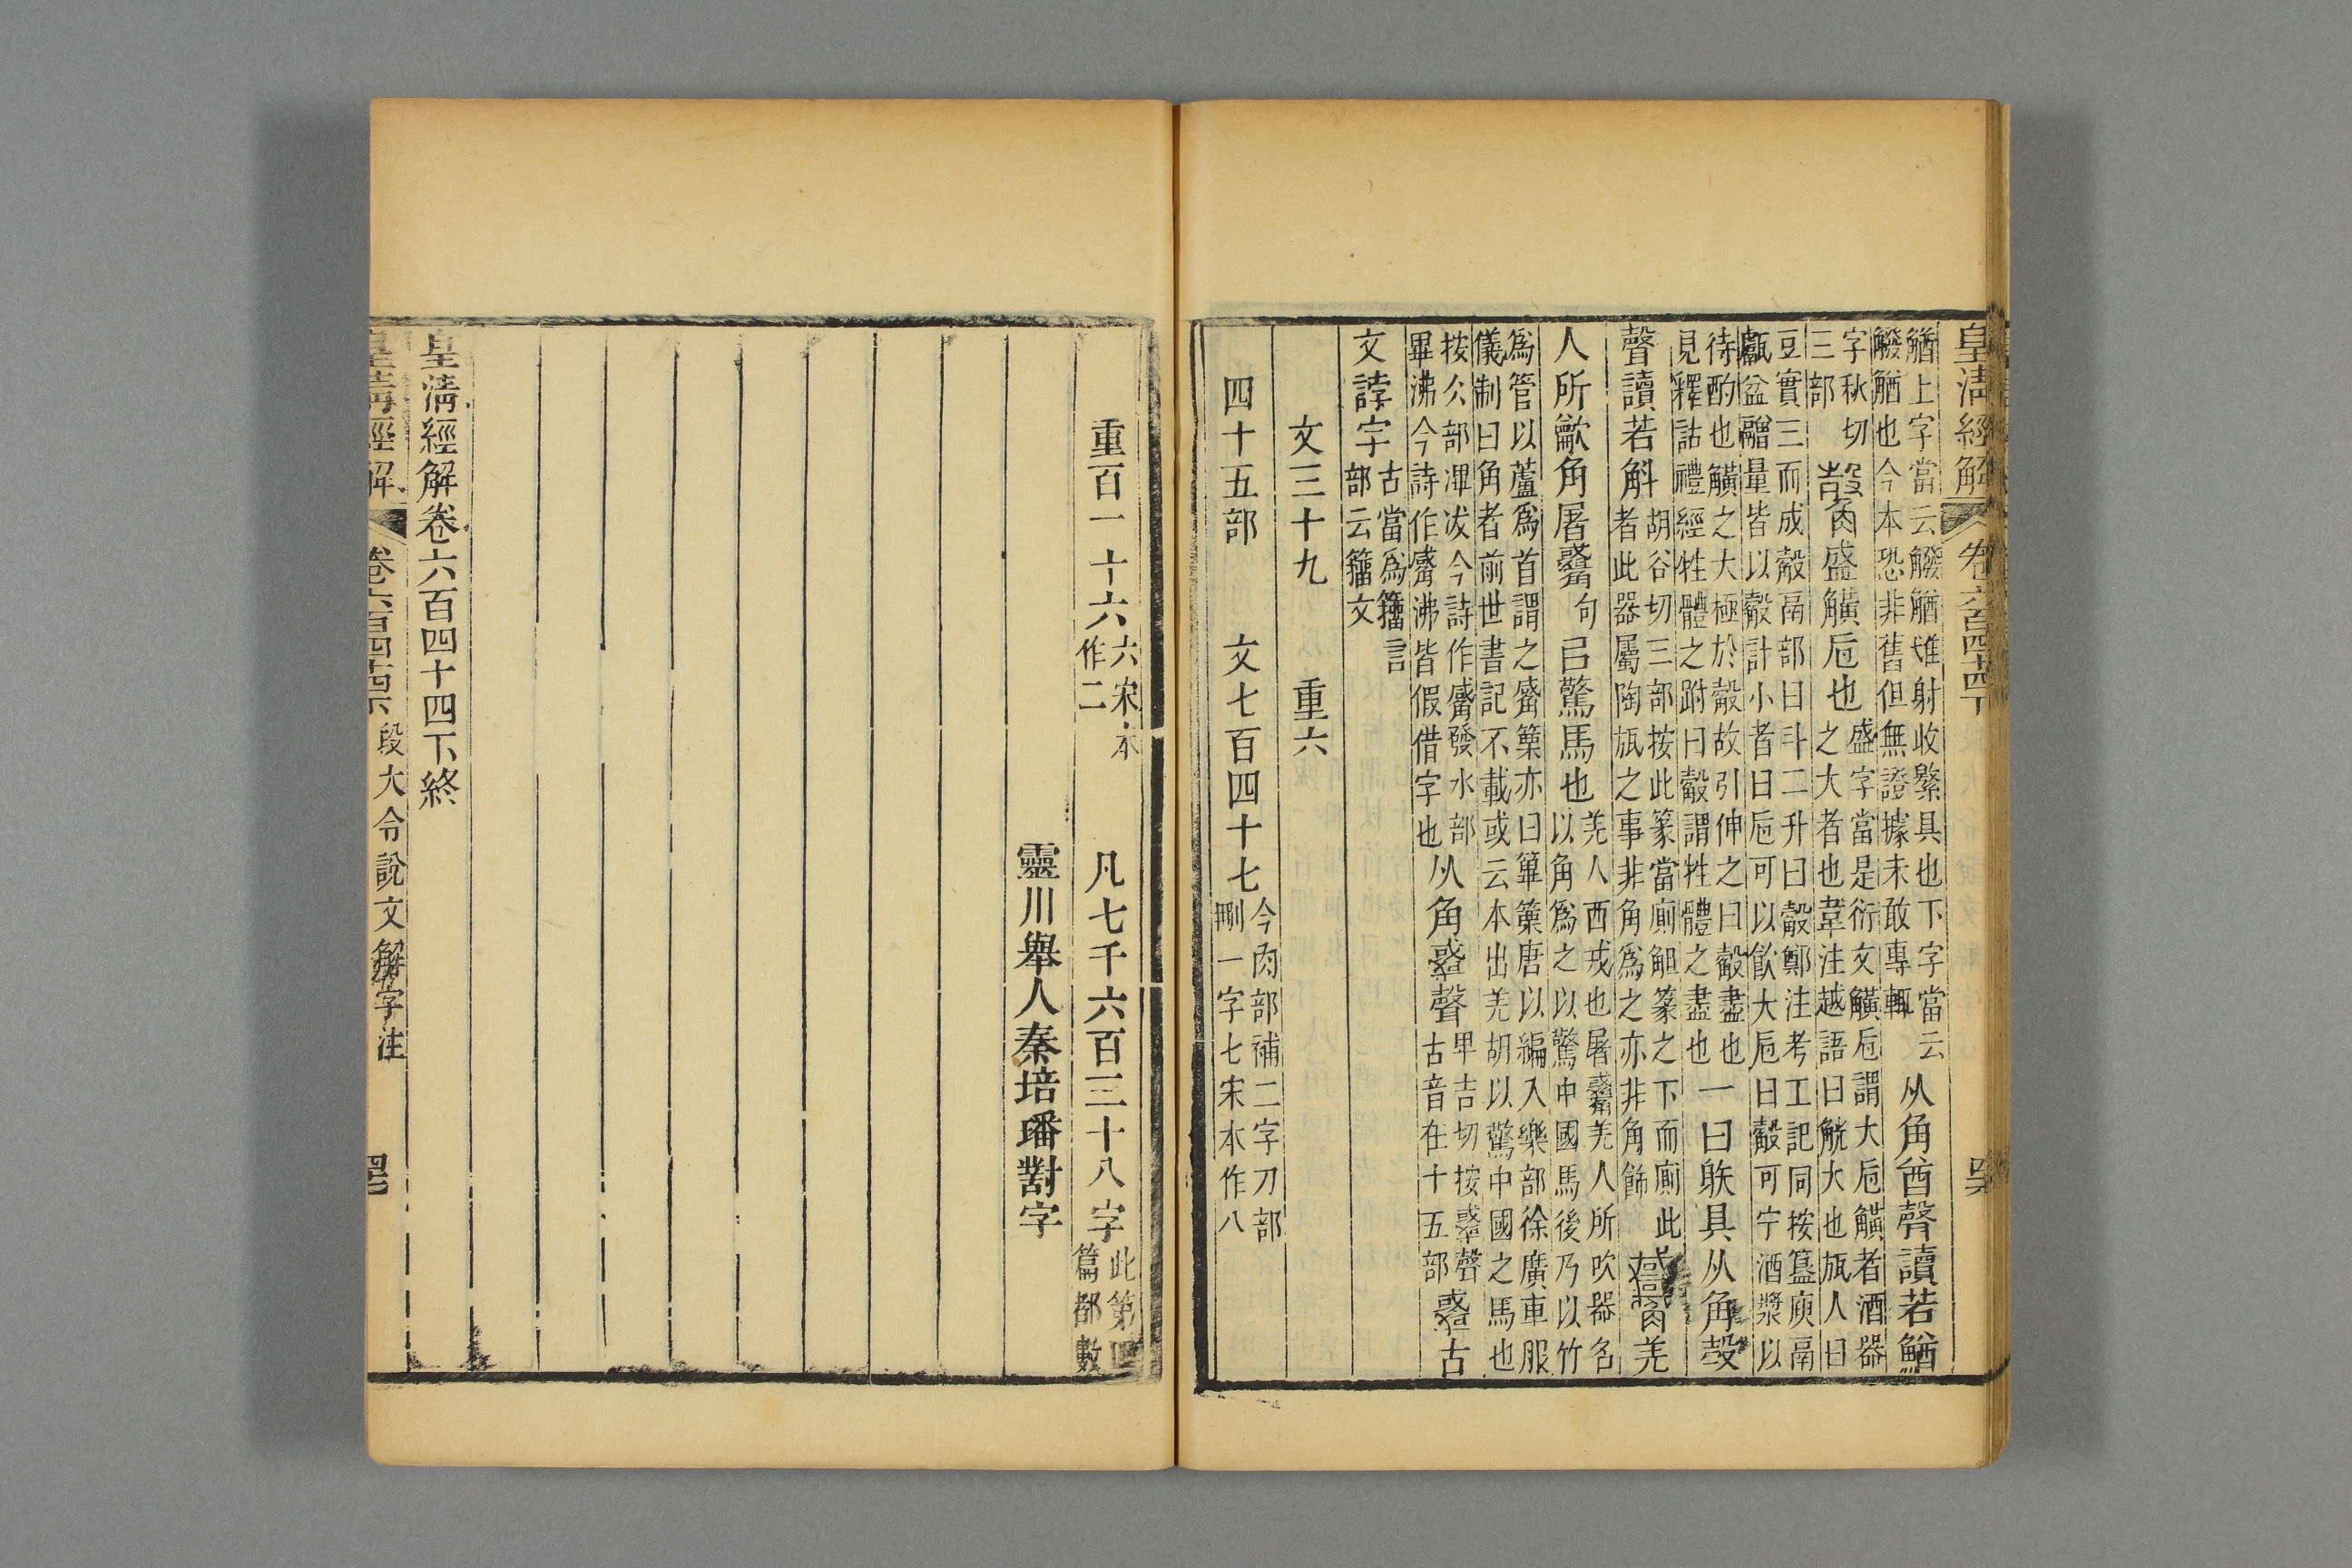 皇清經解 卷六百四十四下
𧤝上字當云䚨𧤝隿射收繁具也下字當云䚨𧤝也今本恐非舊但無證據未敢專輒从角酋聲讀若鰌
字秋切三部觳盛觵巵也盛字當是衍文觵巵謂大巵觵者酒器之大者也韋注越語曰觥大也瓬人曰
豆實三而成觳鬲部曰斗二升曰觳鄭注考工記同按簋庾鬲甗盆䰝量皆以觳計小者曰巵可以飲大巵曰觳可宁酒漿以
待酌也觵之大極於觳故引伸之曰觳盡也見釋詁禮經牲體之跗曰觳謂牲體之盡也一曰躲具从角㱿
聲讀若斛胡谷切三部按此篆當廁觛篆之下而廁此者此器屬陶瓬之事非角爲之亦非角飾𧥜羌
人所龡角屠𧥜句㠯驚馬也羌人西戎也屠𧥜羌人所吹器名以角爲之以驚中國馬後乃以竹
爲管以蘆爲首謂之觱篥亦曰篳篥唐以編入樂部徐廣車服儀制曰角者前世書記不載或云本出羌胡以驚中國之馬也
按仌部滭冹今詩作觱發水部畢沸今詩作觱沸皆假借字也从角𧭶聲卑吉切按𧭶聲古音在十五部𧭶古
文誖字古當爲籒言部云籒文
文三十九 重六
四十五部 文七百四十七今肉部補二字刀部刪一字七宋本作八
重百一十六六宋本作二 凡七千六百三十八字此第四篇都數
靈川舉人秦培璠對字
皇清經解卷六百四十四下終
皇清經解 卷六百四十四下 段大令說文解字注